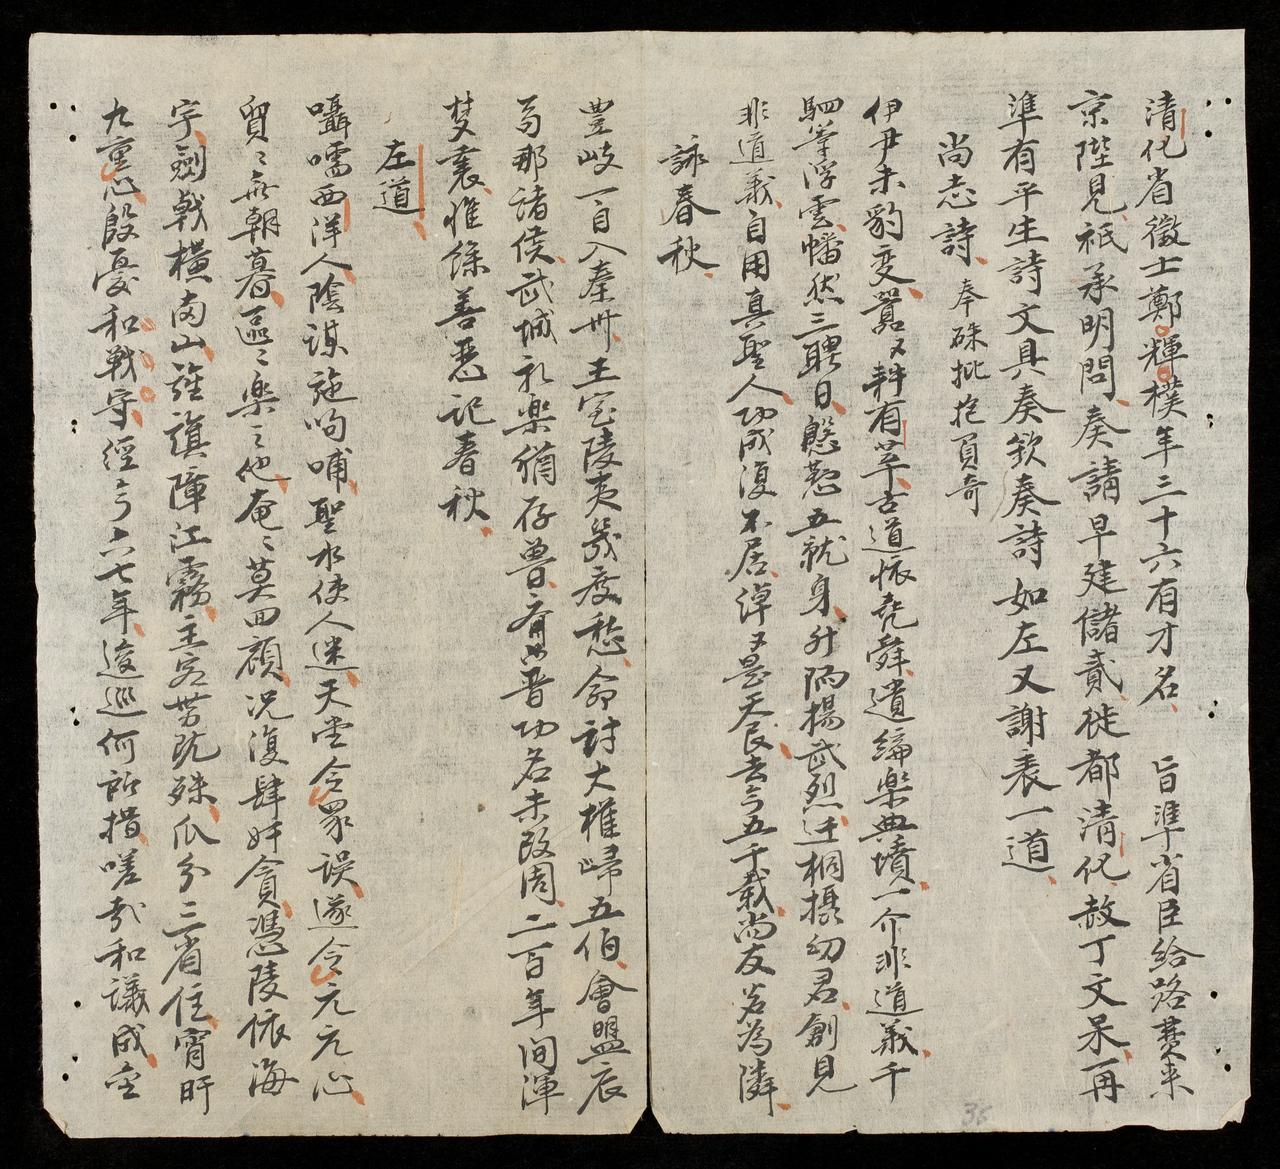 清化省徵士鄭輝樸年三十六有才名 旨準省臣給路費来
京陛見祇承明問奏請早建儲貳徙都清化赦丁文杲一冊
準有平生詩文具奏欽奏詩如左又謝表一道
尚志詩 奉硃批抱負奇
伊尹未豹變囂々耕有莘古道恢堯舜遺編樂典墳一介非道義千
駟等浮雲幡然三聘日慇懃五就身升陑揚武烈迁桐攝幼君創見
非道義自用真聖人功成復不居淖々是天民去今五千載尚友若為隣
詠春秋
豊岐一自入秦卅王室陵夷幾度愁命討大權歸五伯會盟辰
㝵那諸侯武城礼樂猶存魯晋功名未改周二百年间渾
焚裏惟餘善惡記春秋
左道
囁嚅西洋人陰謀施呴哺聖水使人迷天堂令眾誤遂令元元心
貿〻無朝暮區〻樂〻他奄〻莫回顧况復肆奸貪憑陵依海
宇劍戟橫南山旌旗障江霧主客势既殊瓜分三省住宵旰
九重心殷憂和戰守經今六七年逡巡何所措嗟哉和議成空